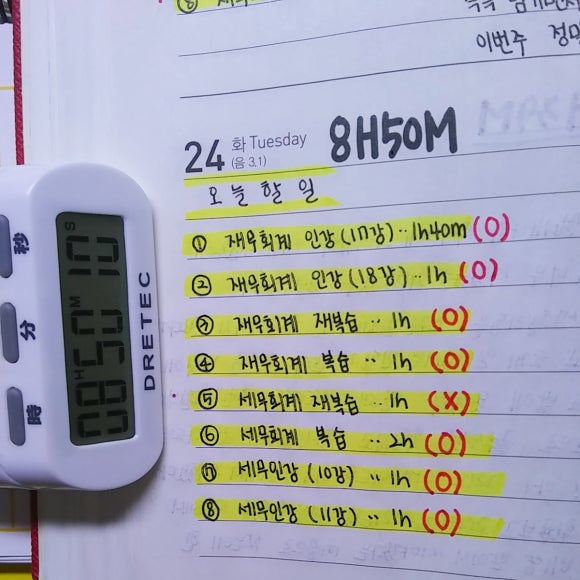 이번주
24 화 Tuesday
(음 3.1)
8H50M
오늘 할 일
① 재무회계 인강 (17강) ·· 1h40m (O)
② 재무회계 인강 (18강) ·· 1h (O)
③ 재무회계 재복습 ·· 1h (O)
④ 재무회계 복습 ·· 1h (O)
⑤ 세무회계 재복습 ·· 1h (X)
⑥ 세무회계 복습 ·· 2h (O)
⑦ 세무인강 (10강) ·· 1h (O)
⑧ 세무인강 (11강) ·· 1h (O)
H M S
08 50 10
DRETEC
時 分 秒